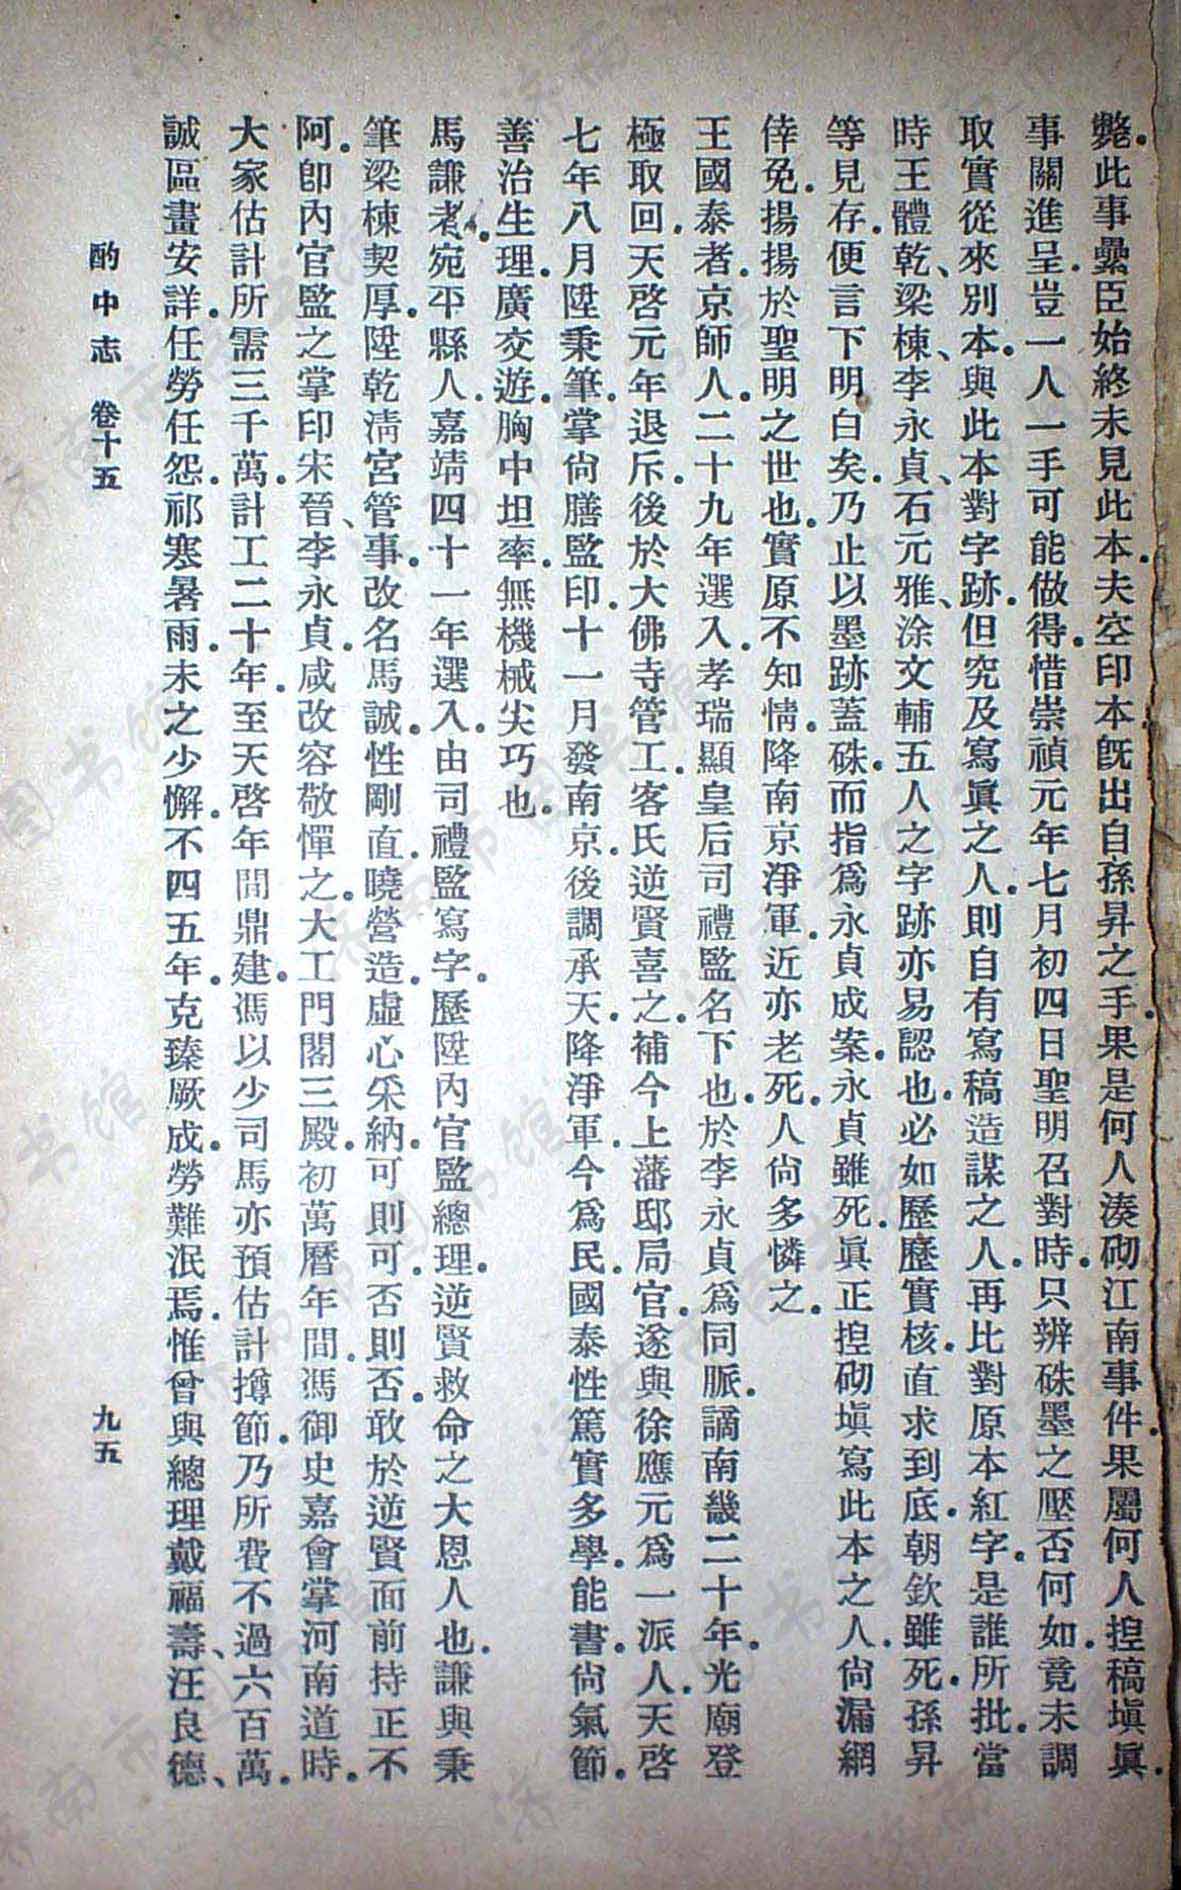 斃。此事纍臣始終未見此本。夫空印本旣出自孫昇之手。果是何人湊砌江南事件。果屬何人揑稿塡眞。
事關進呈。豈一人一手可能做得。惜崇禎元年七月初四日聖明召對時。只辨硃墨之壓否何如。竟未調
取實從來別本。與此本對字跡。但究及寫眞之人。則自有寫稿造謀之人。再比對原本紅字。是誰所批。當
時王體乾、梁棟、李永貞、石元雅、涂文輔五人之字跡亦易認也。必如歷歷實核。直求到底。朝欽雖死。孫昇
等見存。便言下明白矣。乃止以墨跡蓋硃。而指爲永貞成案。永貞雖死。眞正揑砌塡寫此本之人。尙漏網
倖免。揚揚於聖明之世也。實原不知情。降南京淨軍。近亦老死。人尙多憐之。
王國泰者。京師人。二十九年選入。孝瑞顯皇后司禮監名下也。於李永貞爲同脈。謫南畿二十年。光廟登
極取回。天啓元年退斥。後於大佛寺管工。客氏逆賢喜之。補今上藩邸局官。遂與徐應元爲一派人。天啓
七年八月陞秉筆。掌尙膳監印。十一月發南京。後調承天。降淨軍。今爲民。國泰性篤實多學。能書。尙氣節。
善治生理。廣交遊。胸中坦率。無機械尖巧也。
馬謙者。宛平縣人。嘉靖四十一年選入。由司禮監寫字。歷陞內官監總理。逆賢救命之大恩人也。謙與秉
筆梁棟契厚。陞乾淸宮管事。改名馬誠。性剛直。曉營造。虛心采納。可則可。否則否。敢於逆賢面前持正不
阿。卽內官監之掌印宋晉、李永貞。咸改容敬憚之。大工門閣三殿。初萬曆年間。馮御史嘉會掌河南道時。
大家估計所需三千萬。計工二十年。至天啓年間鼎建。馮以少司馬亦預估計撙節。乃所費不過六百萬。
誠區畫安詳。任勞任怨。祁寒暑雨。未之少懈。不四五年。克臻厥成。勞難泯焉。惟曾與總理戴福壽、汪良德、
酌中志 卷十五 九五